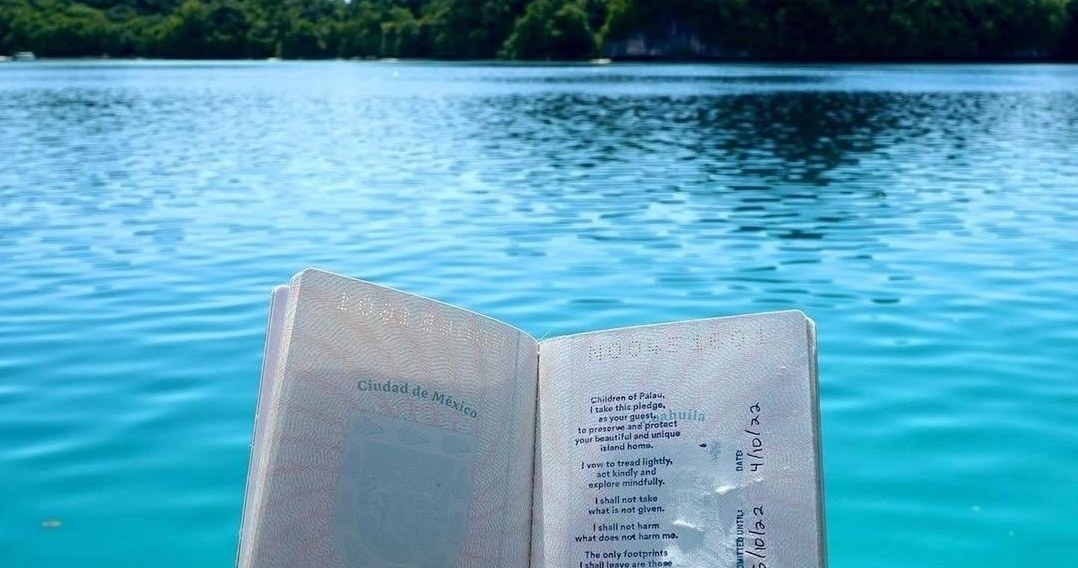 Ciudad de México
Children of Palau,
I take this pledge,
as your guest,
to preserve and protect
your beautiful and unique
island home.
I vow to tread lightly,
act kindly and
explore mindfully.
I shall not take
what is not given.
I shall not harm
what does not harm me.
The only footprints
I shall leave are those
DATE:
4/10/22